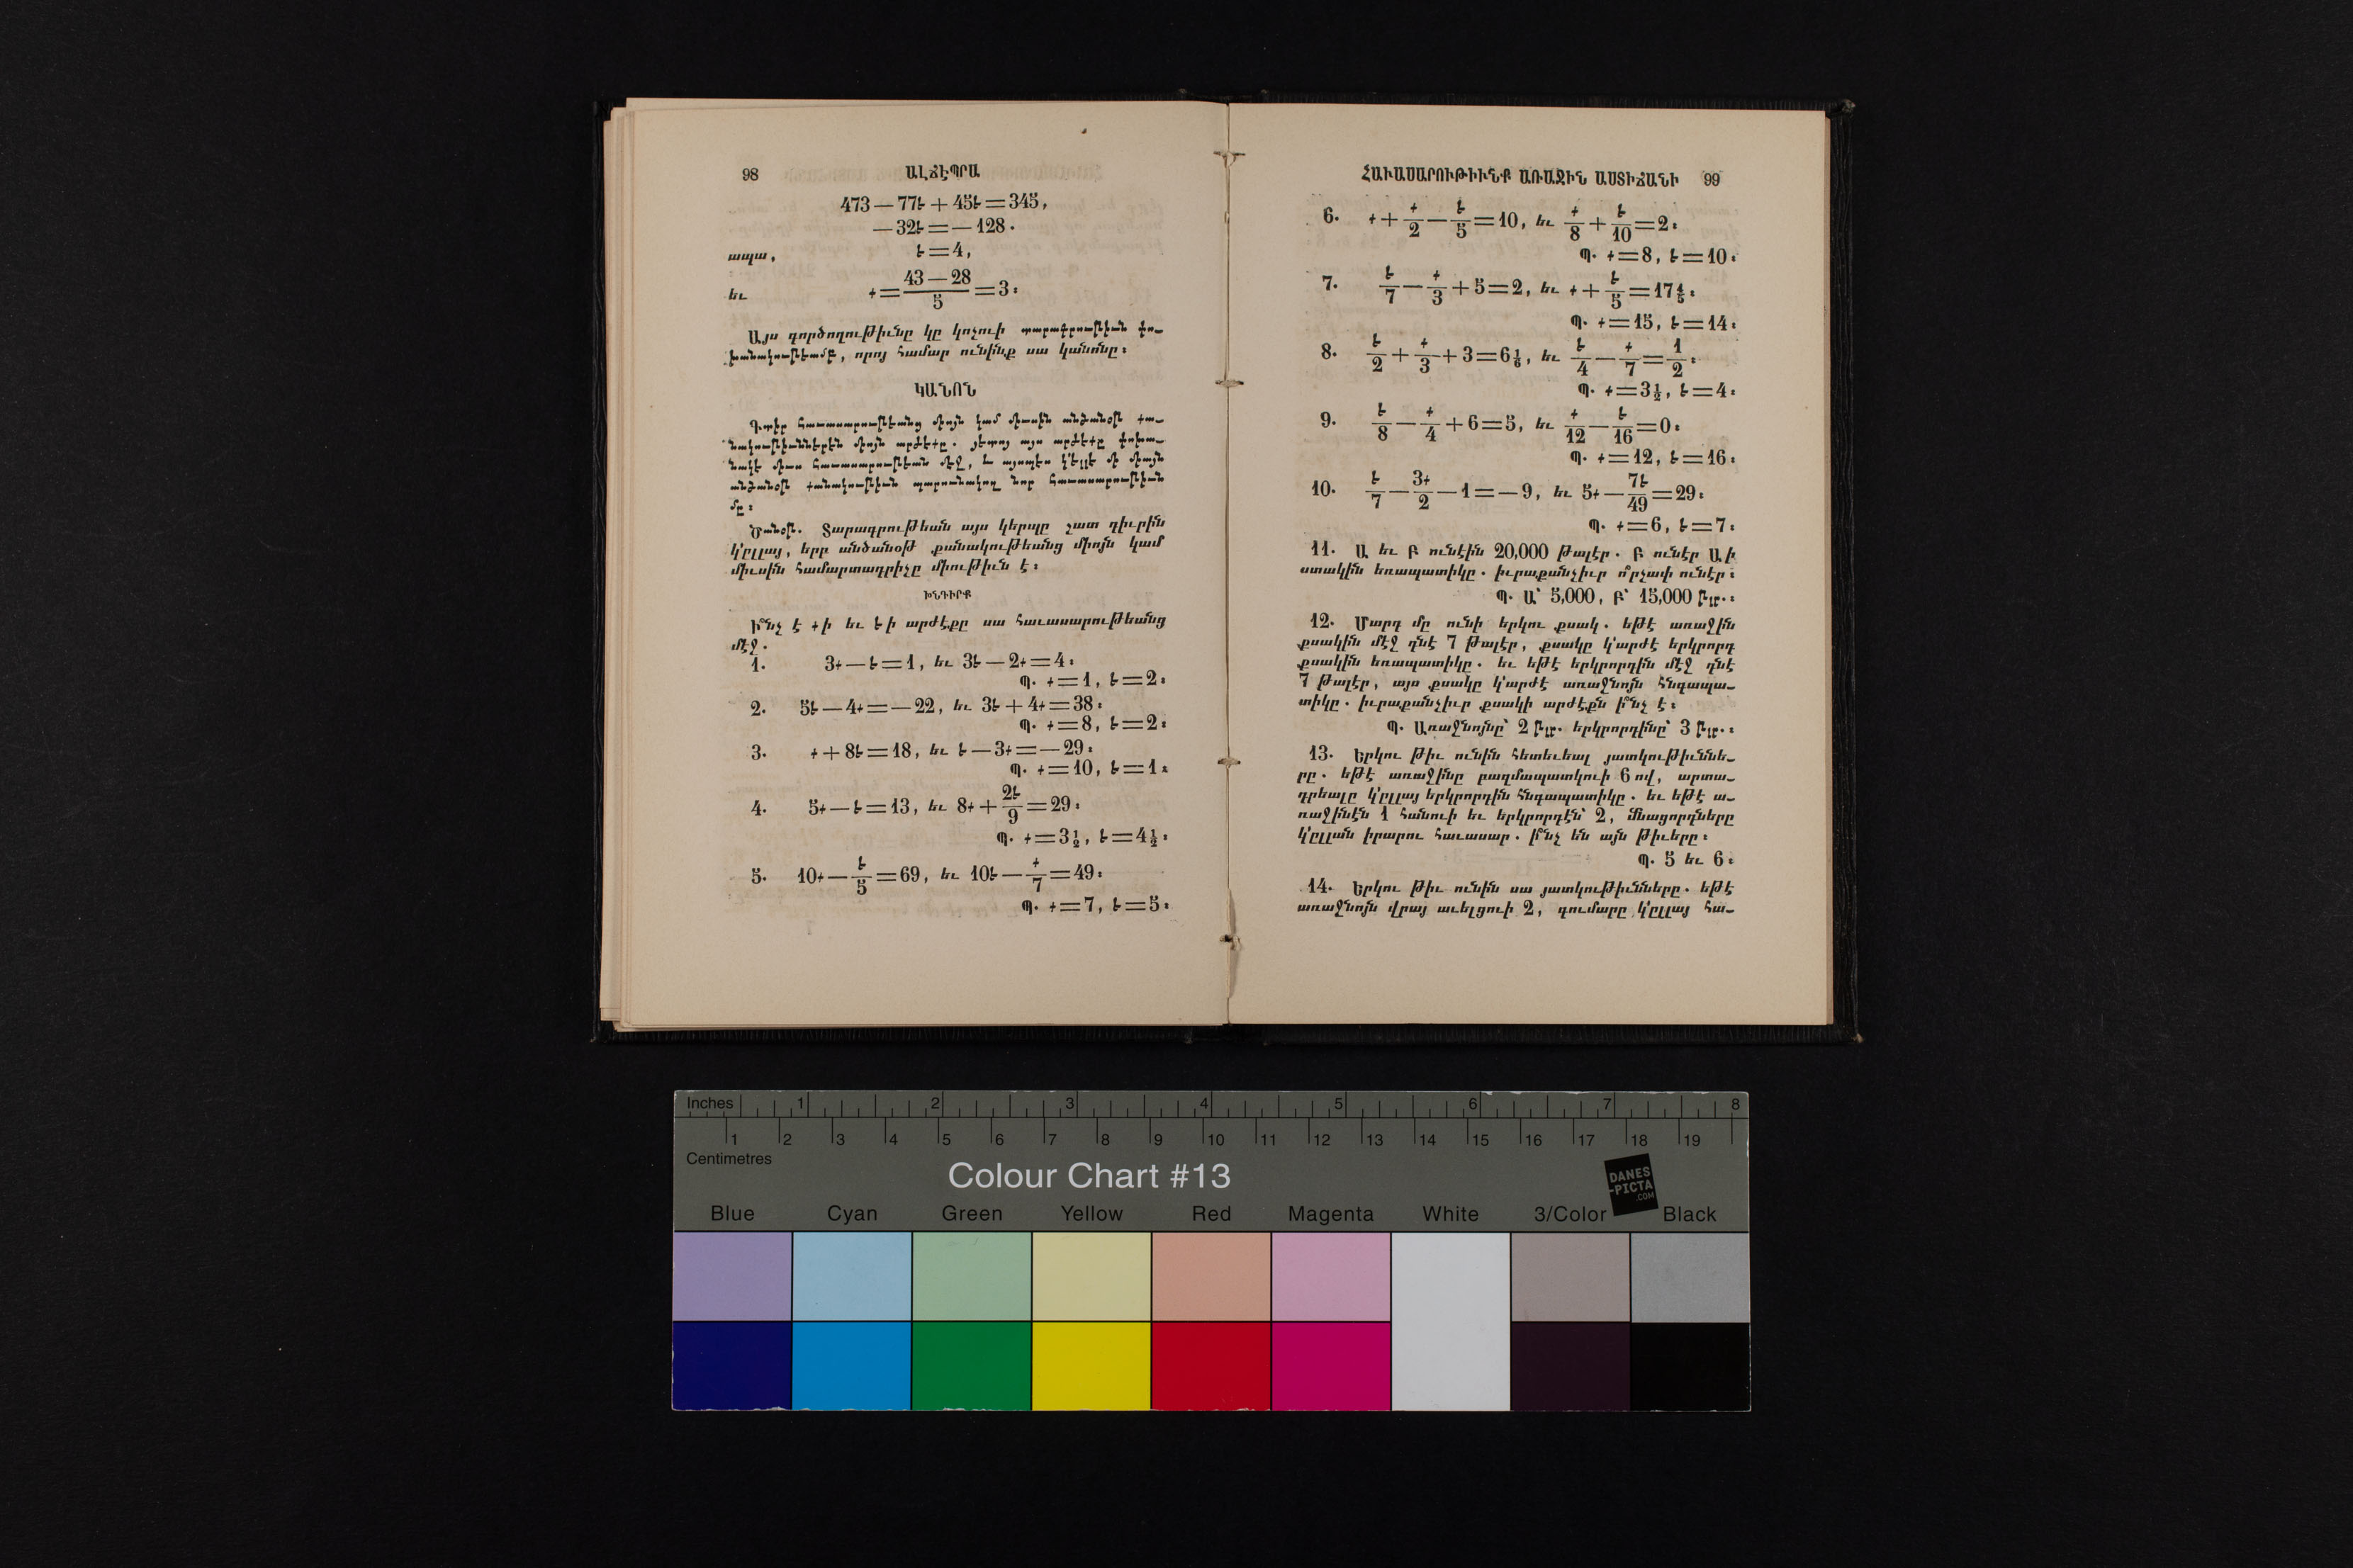 98 ԱԼՃԷՊՐԱ
473 — 77է + 45է = 345,
— 32է = — 128.
ապա, է = 4,
եւ ք = (43 — 28)/5 = 3։
Այս գործողութիւնը կը կոչուի տարագրութիւն փո-
խանակութեամբ, որոյ համար ունինք սա կանոնը։
ԿԱՆՈՆ
Գտիր հաւասարութեանց միոյն կամ միւսին անծանօթ քա-
նակութիւններէն միոյն արժէքը. յետոյ այս արժէքը փոխա-
նակէ միւս հաւասարութեան մէջ, և այսպէս կ՚ելլէ մի միայն
անծանօթ քանակութիւն պարունակող նոր հաւասարութիւն
մը։
Ծանօթ. Տարագրութեան այս կերպը շատ դիւրին
կ՚ըլլայ, երբ անծանօթ քանակութեանց միոյն կամ
միւսին համարտադրիչը միութիւն է։
ԽՆԴԻՐՔ
Ի՞նչ է ք ի եւ է ի արժէքը սա հաւասարութեանց
մէջ.
1. 3ք — է = 1, եւ 3է — 2ք = 4։
Պ. ք = 1, է = 2։
2. 5է — 4ք = — 22, եւ 3է + 4ք = 38։
Պ. ք = 8, է = 2։
3. ք + 8է = 18, եւ է — 3ք = — 29։
Պ. ք = 10, է = 1։
4. 5ք — է = 13, եւ 8ք + 2է/9 = 29։
Պ. ք = 3 1/2, է = 4 1/2։
5. 10ք — է/5 = 69, եւ 10է — ք/7 = 49։
Պ. ք = 7, է = 5։
ՀԱՒԱՍԱՐՈՒԹԻՒՆՔ ԱՌԱՋԻՆ ԱՍՏԻՃԱՆԻ 99
6. ք + ք/2 — է/5 = 10, եւ ք/8 + է/10 = 2։
Պ. ք = 8, է = 10։
7. է/7 — ք/3 + 5 = 2, եւ ք + է/5 = 17 4/5։
Պ. ք = 15, է = 14։
8. է/2 + ք/3 + 3 = 6 1/6, եւ է/4 — ք/7 = 1/2։
Պ. ք = 3 1/2, է = 4։
9. է/8 — ք/4 + 6 = 5, եւ ք/12 — է/16 = 0։
Պ. ք = 12, է = 16։
10. է/7 — 3ք/2 — 1 = — 9, եւ 5ք — 7է/49 = 29։
Պ. ք = 6, է = 7։
11. Ա եւ Բ ունէին 20,000 թալէր. Բ ունէր Ա ի
ստակին եռապատիկը. իւրաքանչիւր ո՞րչափ ունէր։
Պ. Ա՝ 5,000, Բ՝ 15,000 թլր.։
12. Մարդ մը ունի երկու քսակ. եթէ առաջին
քսակին մէջ դնէ 7 թալէր, քսակը կ՚արժէ երկրորդ
քսակին եռապատիկը. եւ եթէ երկրորդին մէջ դնէ
7 թալէր, այս քսակը կ՚արժէ առաջնոյն հնգապա-
տիկը. իւրաքանչիւր քսակի արժէքն ի՞նչ է։
Պ. Առաջնոյնը՝ 2 թլր. երկրորդինը՝ 3 թլր.։
13. Երկու թիւ ունին հետեւեալ յատկութիւննե-
րը. եթէ առաջինը բազմապատկուի 6 ով, արտա-
դրեալը կ՚ըլլայ երկրորդին հնգապատիկը. եւ եթէ ա-
ռաջինէն 1 հանուի եւ երկրորդէն՝ 2, մնացորդները
կ՚ըլլան իրարու հաւասար. ի՞նչ են այն թիւերը։
Պ. 5 եւ 6։
14. Երկու թիւ ունին սա յատկութիւնները. եթէ
առաջնոյն վրայ աւելցուի 2, գումարը կ՚ըլլայ հա-
Inches 1 2 3 4 5 6 7 8
1 2 3 4 5 6 7 8 9 10 11 12 13 14 15 16 17 18 19
Centimetres
Colour Chart #13
DANES
-PICTA
.COM
Blue Cyan Green Yellow Red Magenta White 3/Color Black